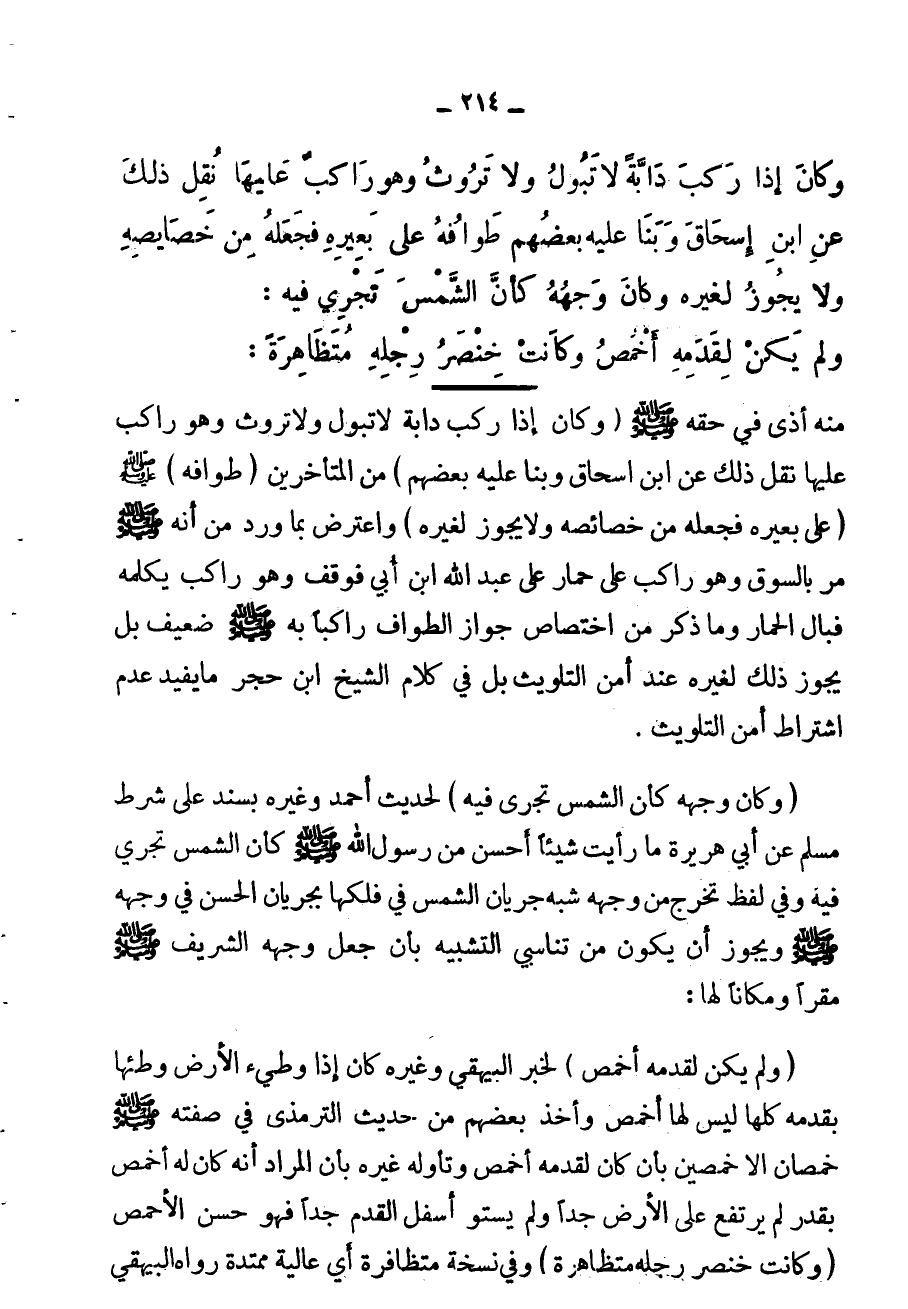 ـ ٢١٤ ـ
وكانَ إذا رَكبَ دَابَّةً لاتَبُولُ ولا تَرُوثُ وهو رَاكبٌ عَليهَا نُقِل ذلكَ
عنِ ابنِ إسحَاقَ وَبَنَا عليه بعضُهم طَوافُهُ على بَعِيرِهِ فجَعَلهُ مِن خَصَايصِهِ
ولا يجُوزُ لغيره وكانَ وَجهُهُ كأنَّ الشَّمْسَ تَجْرِي فيه :
ولم يَكنْ لِقَدَمِهِ أَخمَصُ وكاَنتْ خِنْصَرُ رِجْلِهِ مُتَظَاهِرَةً :
منه أذى في حقه ﷺ ( وكان إذا ركب دابة لاتبول ولاتروث وهو راكب
عليها نقل ذلك عن ابن اسحاق وبنا عليه بعضهم ) من المتأخرين ( طوافه ) ﷺ
( على بعيره فجعله من خصائصه ولايجوز لغيره ) واعترض بما ورد من أنه ﷺ
مر بالسوق وهو راكب على حمار على عبد الله ابن أبي فوقف وهو راكب يكلمه
فبال الحمار وما ذكر من اختصاص جواز الطواف راكباً به ﷺ ضعيف بل
يجوز ذلك لغيره عند أمن التلويث بل في كلام الشيخ ابن حجر مايفيد عدم
اشتراط أمن التلويث .
( وكان وجهه كأن الشمس تجرى فيه ) لحديث أحمد وغيره بسند على شرط
مسلم عن أبي هريرة ما رأيت شيئاً أحسن من رسول الله ﷺ كأن الشمس تجري
فيه وفي لفظ تخرج من وجهه شبه جريان الشمس في فلكها بجريان الحسن في وجهه
ﷺ ويجوز أن يكون من تناسي التشبيه بأن جعل وجهه الشريف ﷺ
مقراً ومكاناً لها :
( ولم يكن لقدمه أخمص ) لخبر البيهقي وغيره كان إذا وطيء الأرض وطئها
بقدمه كلها ليس لها أخمص وأخذ بعضهم من حديث الترمذى في صفته ﷺ
خمصان الا خمصين بأن كان لقدمه أخمص وتأوله غيره بأن المراد أنه كان له أخمص
بقدر لم يرتفع على الأرض جداً ولم يستو أسفل القدم جداً فهو حسن الأحمص
( وكانت خنصر رجله متظاهرة ) وفي نسخة متظافرة أي عالية ممتدة رواه البيهقي